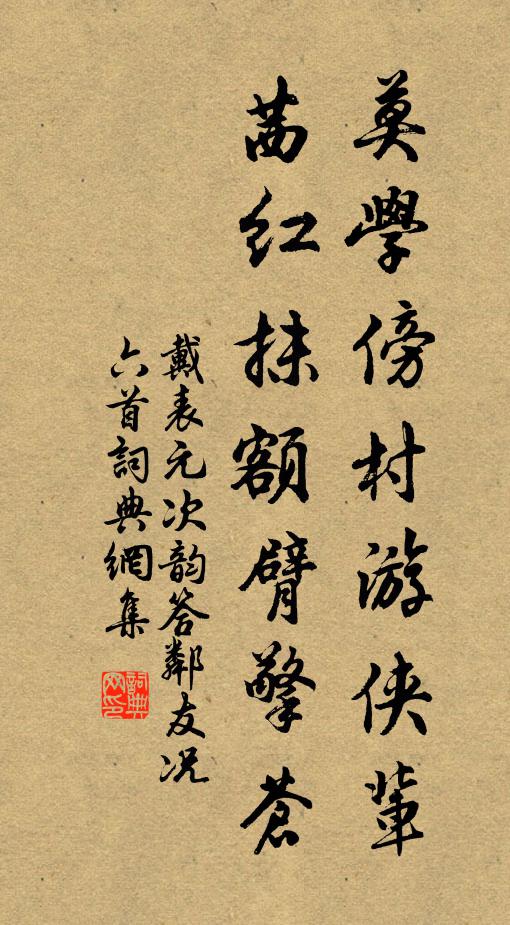 莫學傍村游俠輩
茜紅抹額臂擎蒼
戴表元次韵答鄰友况
六首詞典網集
詞典網印